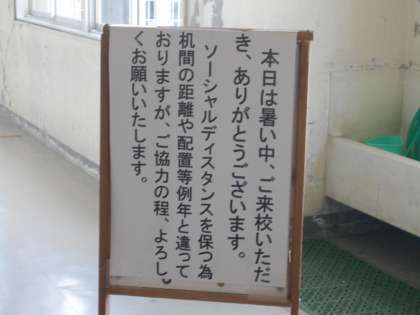 本日は暑い中、ご来校いただ
き、ありがとうございます。
ソーシャルディスタンスを保つ為
机間の距離や配置等例年と違って
おりますが、ご協力の程、よろし
くお願いいたします。